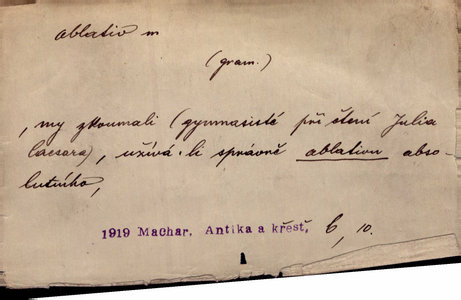 ablativ m
(gram.)
, my zkoumali (gymnasisté při čtení Julia
Caesara), užívá-li správně ablativu abso-
lutního,
1919 Machar, Antika a křesť, 6, 10.